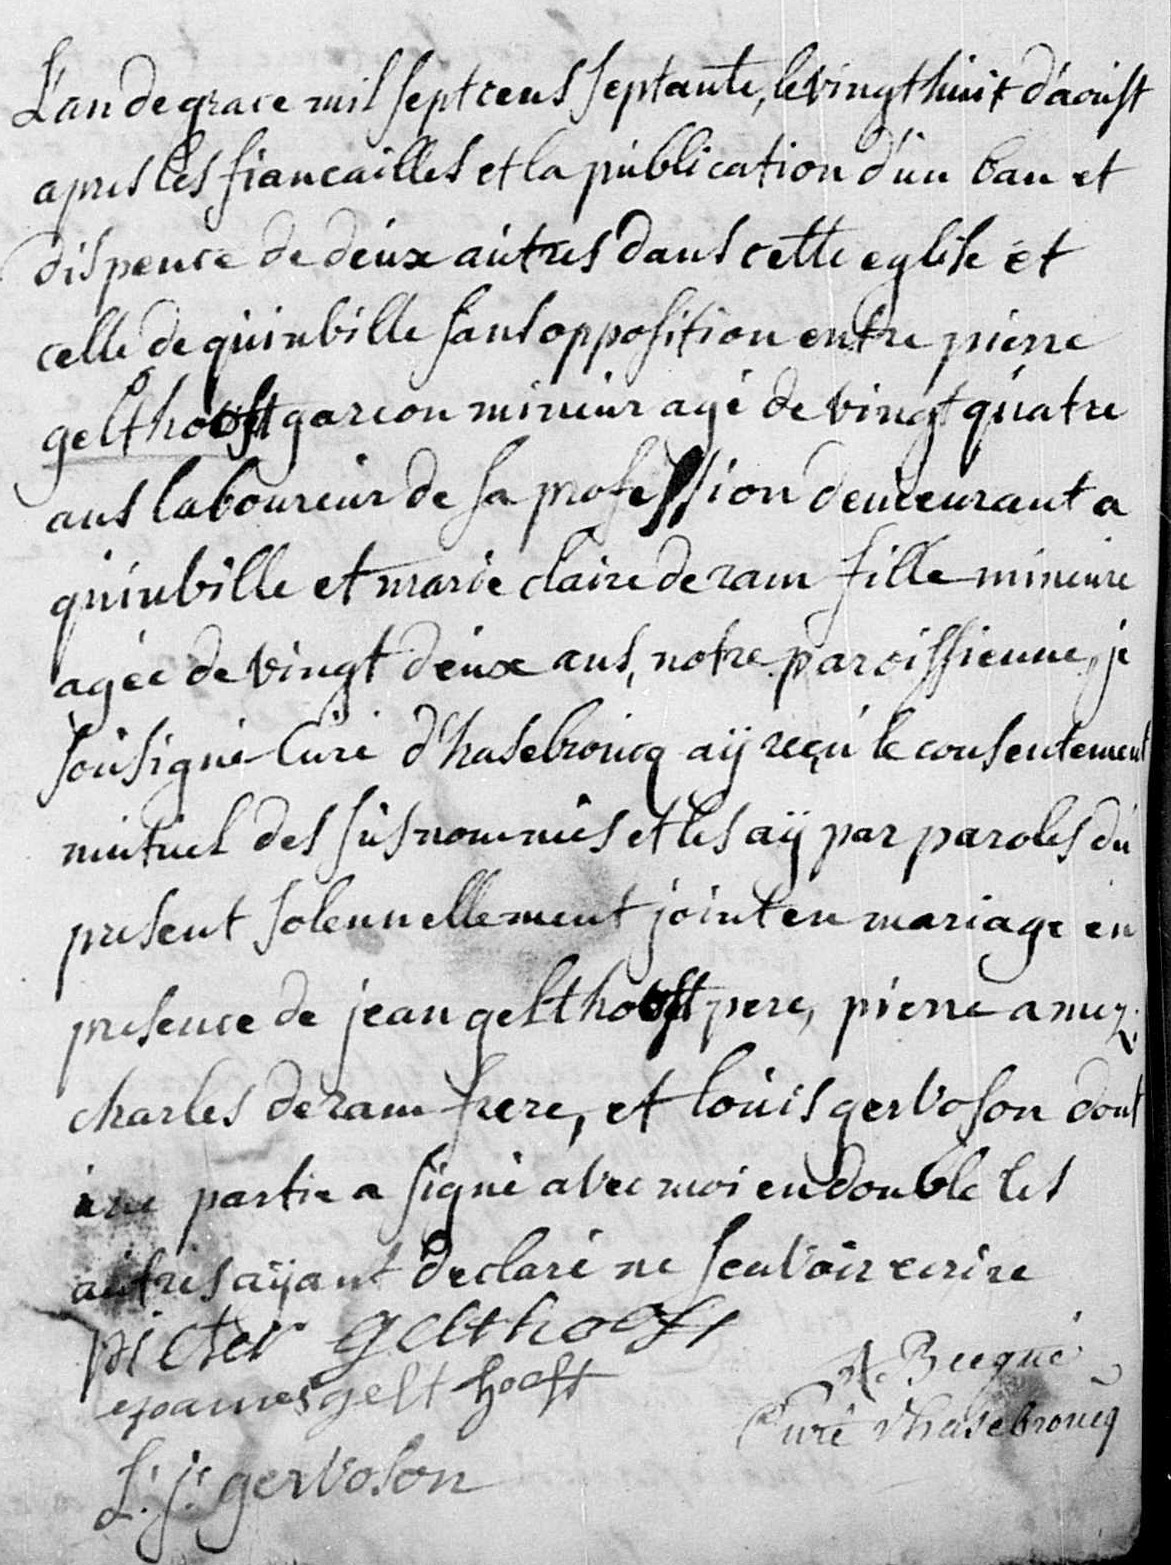 L'an de grace mil sept cens septante, le vingt huit d'aoust
apres les fiancailles et la publication d'un ban et
dispence de deux autres dans cette eglise et
celle de quinville sans opposition entre pierre
gelthooft garcon mineur agé de vingt quatre
ans laboureur de sa profession demeurant a
quinville et marie claire deram fille mineure
agée de vingt deux ans, notre paroissienne, je
sousigné Curé d'hasebroucq aÿ reçu le consentement
mutuel des susnommés et les aÿ par paroles du
present solennellement joint en mariage en
presence de jean gelthooft pere, pierre amez,
charles deram frere, et louis gervoson dont
une partie a signé avec moi en double les
autres aÿant declaré ne scavoir ecrire
pieter gelthooft
joannes gelt hooft
Becqué
Curé d'hasebroucq
L: j: gervoson